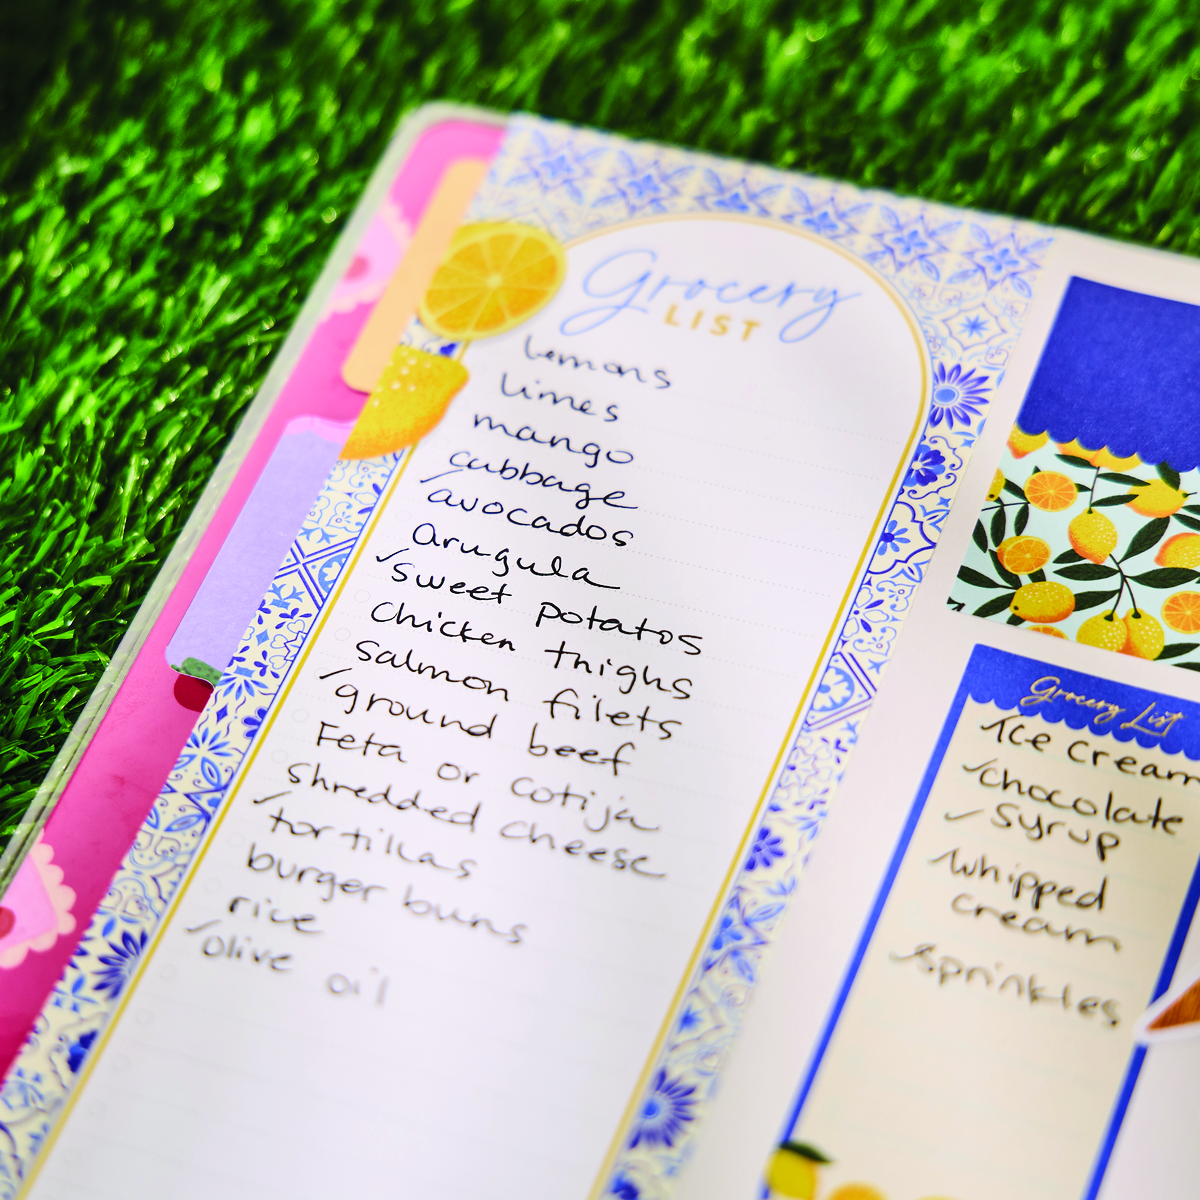 Grocery
LIST
lemons
limes
mango
cabbage
avocados
Arugula
sweet potatos
Chicken thighs
salmon filets
ground beef
Feta or cotija
shredded cheese
tortillas
burger buns
rice
olive oil
Grocery List
Ice cream
chocolate
syrup
whipped
cream
sprinkles